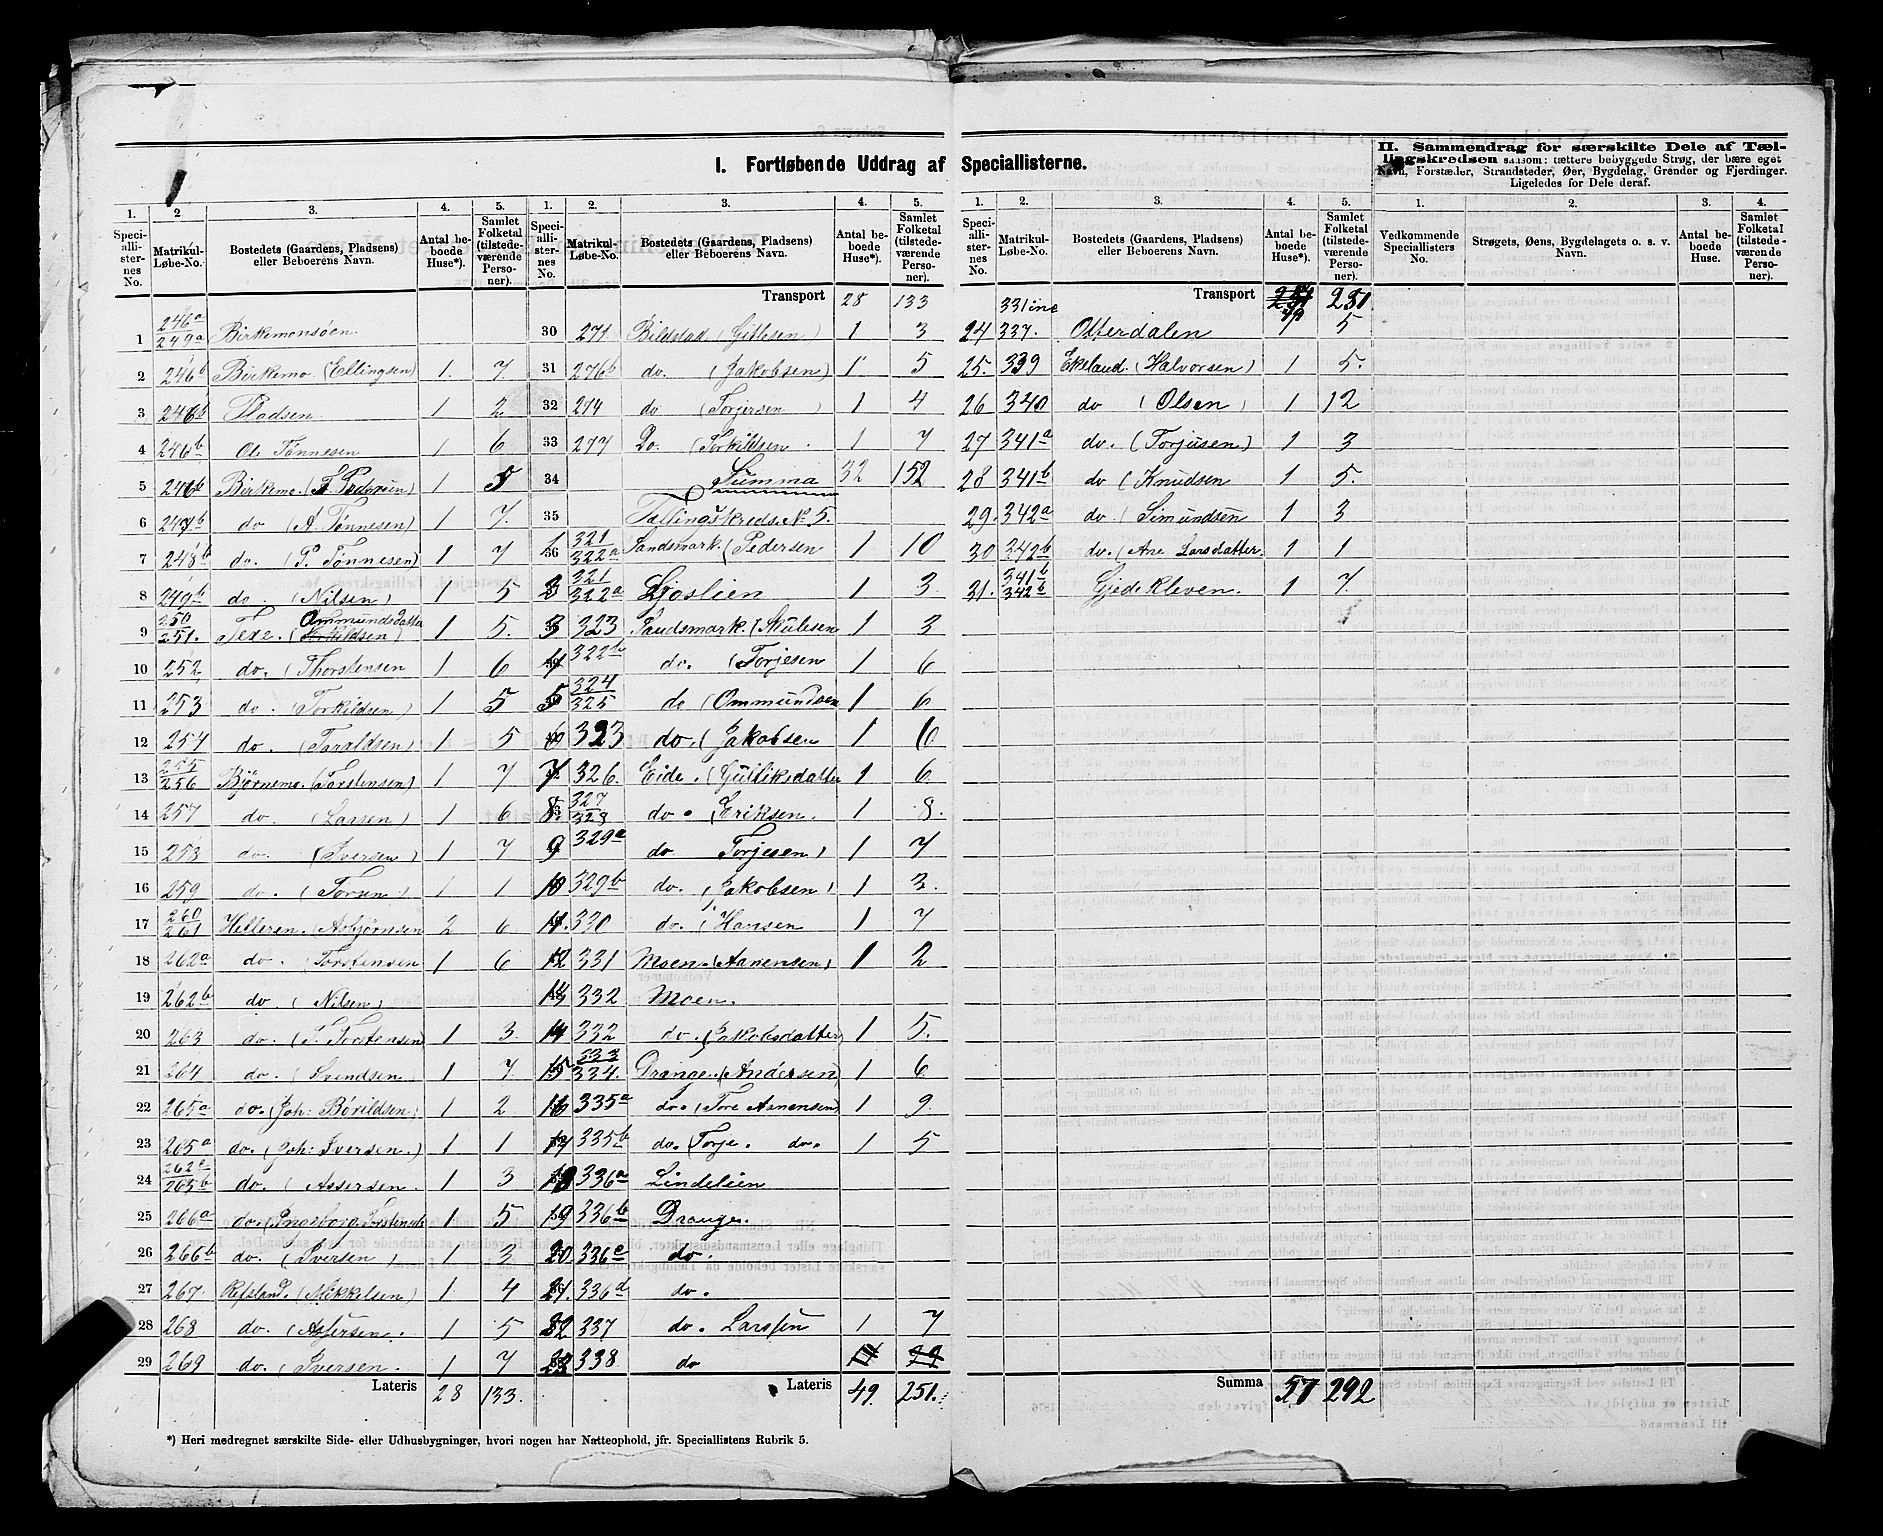 I. Fortløbende Uddrag af Speciallisterne.
1. 2 3. 4. 5.
Speciallisternes No. Matrikul-Løbe-No. Bostedets (Gaardens, Pladsens) eller Beboerens Navn. Antal beboede Huse*). Samlet Folketal (tilstedeværende Personer).
1 246a/249a Birkemonsøen
2 246b Birkemo (Ellingsen) 1. 7
3 246b Pladsen 1 2
4 246b Ol. Tønnesen 1 6
5 246b Birkemo (T. Pedersen) 1 5
6 247b do (A. Tønnesen) 1 7.
7 248b do. (P. Tønnesen) 1 7
8 249b do (Nilsen) 1 5
9 250/251. Texe. (Ommundsdatter 1 5.
10 252 do. (Thorstensen 1 6
11 253 do. (Torkildsen) 1 5
12 254 do. (Taraldsen) 1 5
13 255/256 Bjørnemo. (Torstensen) 1 7
14 257 do. (Larsen) 1 6
15 258 do. (Iversen) 1 7
16 259 do. 1 1
17 260/261 Helleren. (Asbjørnsen 2 6
18 262a do. (Torstensen 1 6
19 262b do. (Nilsen)
20 263 do. (T. Torstensen) 1 3.
21 264 do. (Svendsen 1 7
22 265a do. (Joh: Børildsen) 1 2
23 265a do. (Joh: Iversen.) 1 1
24 262c/265b do. (Assersen 1 3
25 266a do. (Ingeborg 1 5
26 266b do. (Iversen) 1 3
27 267 Refsland. (Mikkelsen) 1 4
28 268 do. (Assersen. 1 5
29 269 do. (Iversen. 1 7
Lateris 28 133.
1. 2. 3. 4. 5.
Speciallisternes No. Matrikul-Løbe-No. Bostedets (Gaardens, Pladsens) eller Beboerens Navn. Antal beboede Huse*). Samlet Folketal (tilstedeværende Personer).
Transport 28 133
30 271 Bildstad (Gitlesen) 1 3
31 276b do. (Jakobsen) 1 5
32 274 do (Torjersen) 1 4
33 277 Do. (Torkildsen. 1 7
34 Summa 32 152
35 Tællingskreds No 5.
1 321/322a Sandsmark. (Pedersen 1 10
2 321/322a Ljoslien 1 3
3 323 Sandsmark. (Skulesen 1 3
4 322b do. (Torjesen 1 6
5 324/325 do (Ommundsen 1 6
6 323 do. (Jakobsen 1 6
7 326. Eide. (Gulliksdatter 1 6.
8. 327/328 do. (Eriksen. 1 8.
9 329a do Torjesen) 1 7
10 329b do. (Jakobsen) 1 3.
11. 330 do. (Hansen 1 7
12 331 Moen. (Aanensen) 1 2
13 332 Moen.
14 332 do. (Jakobsdatter) 1 5.
15 333/334. Drange. (Andersen) 1 6
16 335a do. (Tore Aanensen) 1 9.
17 335b do. (Torje. do. 1 5
18 336a Lindelien
19 336b Drange.
20. 336c do.
21. 336d do.
22 337 do. Larssen 1 7
23 338 do
Lateris 49. 251.
1. 2. 3. 4. 5.
Speciallisternes No. Matrikul-Løbe-No. Bostedets (Gaardens, Pladsens) eller Beboerens Navn. Antal beboede Huse*). Samlet Folketal (tilstedeværende Personer).
Transport 49 251
331 ine
24 337. Otterdalen 1 5
25. 339 Ekeland. (Halvorsen) 1 5.
26 340 do (Olsen) 1 12
27 341a do. (Torjusen) 1 3
28 341b do (Knudsen 1 5.
29. 342a do. (Simundsen 1 3
30 342b do. (Ane Larsdatter. 1 1
31. 341b/342b Gjedekleven. 1 7.
Summa 57 292
II. Sammendrag for særskilte Dele af Tællingskredsen saasom: tættere bebyggede Strøg, der bære eget Navn, Forstæder, Strandsteder, Øer, Bygdelag, Grender og Fjerdinger. Ligeledes for Dele deraf.
1. 2. 3. 4.
Vedkommende Speciallisters No. Strøgets, Øens, Bygdelagets o. s. v. Navn. Antal beboede Huse. Samlet Folketal (tilstedeværende Personer).
*) Heri medregnet særskilte Side- eller Udhusbygninger, hvori nogen har Natteophold, jfr. Speciallistens Rubrik 5.